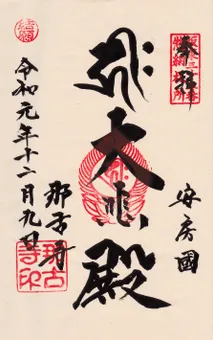 奉拝
安房國
大悲殿
那古寺
令和元年十二月九日
那古
寺印